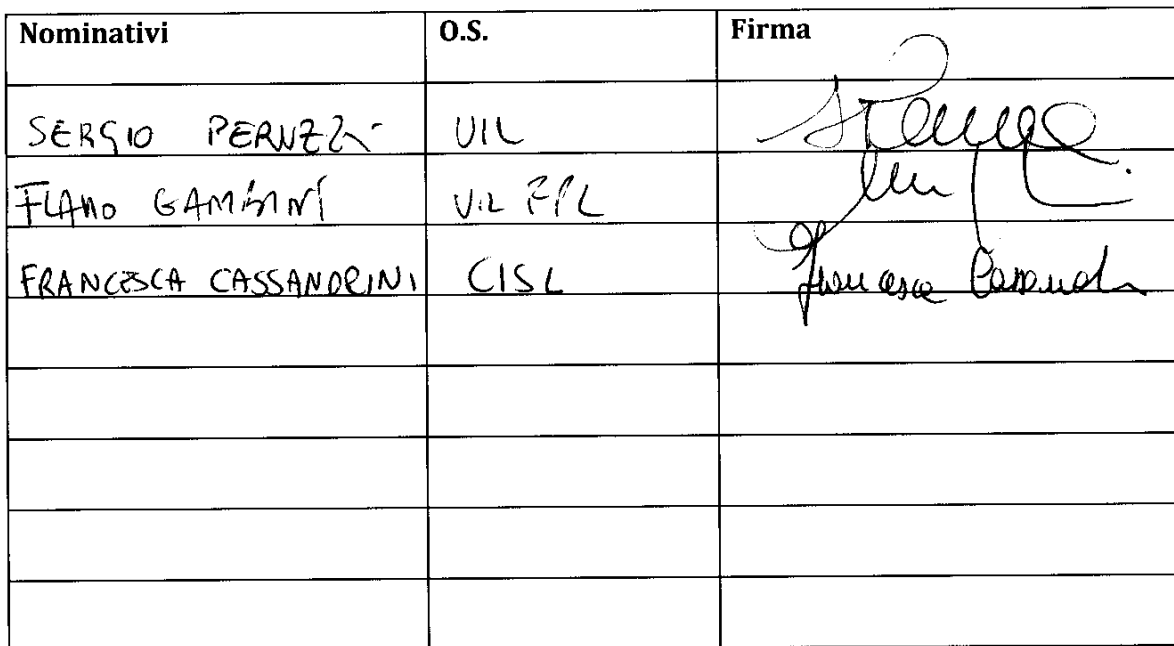 Nominativi O.S. Firma
SERGIO PERUZZI UIL
GAMBINI UIL FPL
FRANCESCA CASSANDRINI CISL Francesca Cassandrini